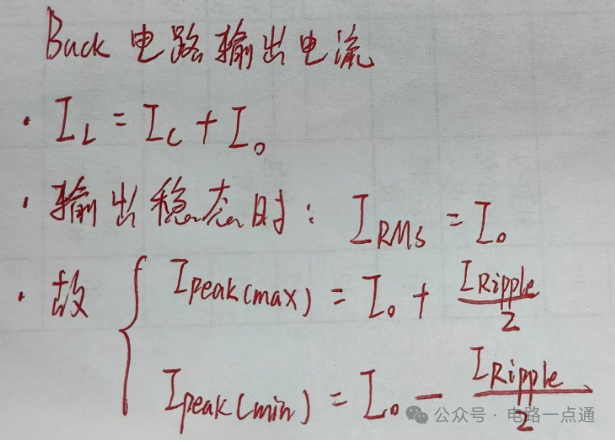 Buck 电路输出电流
· I_L = I_C + I_o
· 输出稳态时: I_RMS = I_o
· 故 { I_peak(max) = I_o + I_Ripple/2
I_peak(min) = I_o - I_Ripple/2
公众号 · 电路一点通